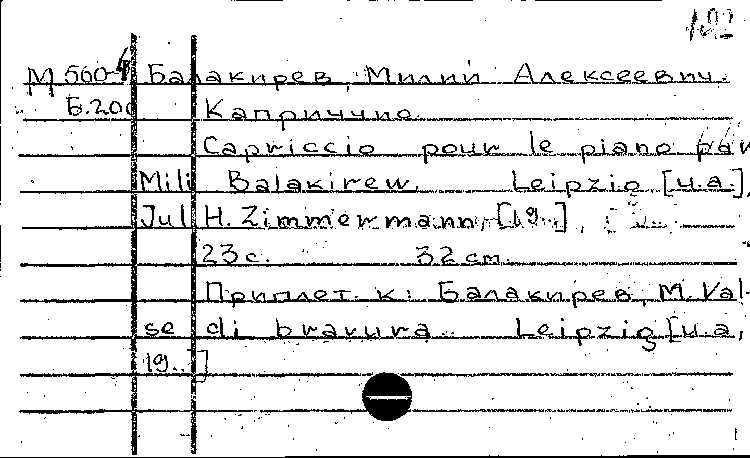 102
М 560-4 Балакирев, Милий Алексеевич.
Б.200 Каприччио.
Capriccio pour le piano par
Mili Balakirew. Leipzig [u.a.],
Jul. H. Zimmermann, [19..],
23 с. 32 см.
Приплет. к: Балакирев, М. Val-
se di bravura. Leipzig [u.a,
19..]